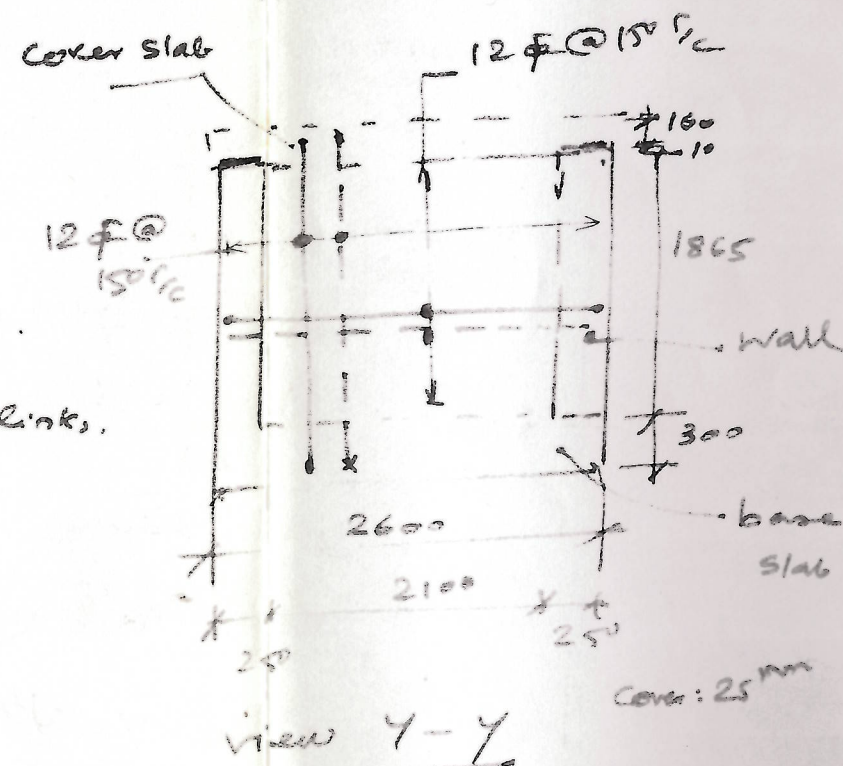 cover slab
12 ¢ @ 150 c/c
160
10
12 ¢ @
150 c/c
1865
wall
links.
300
2600
base
slab
2100
250
250
cover: 25 mm
view Y-Y